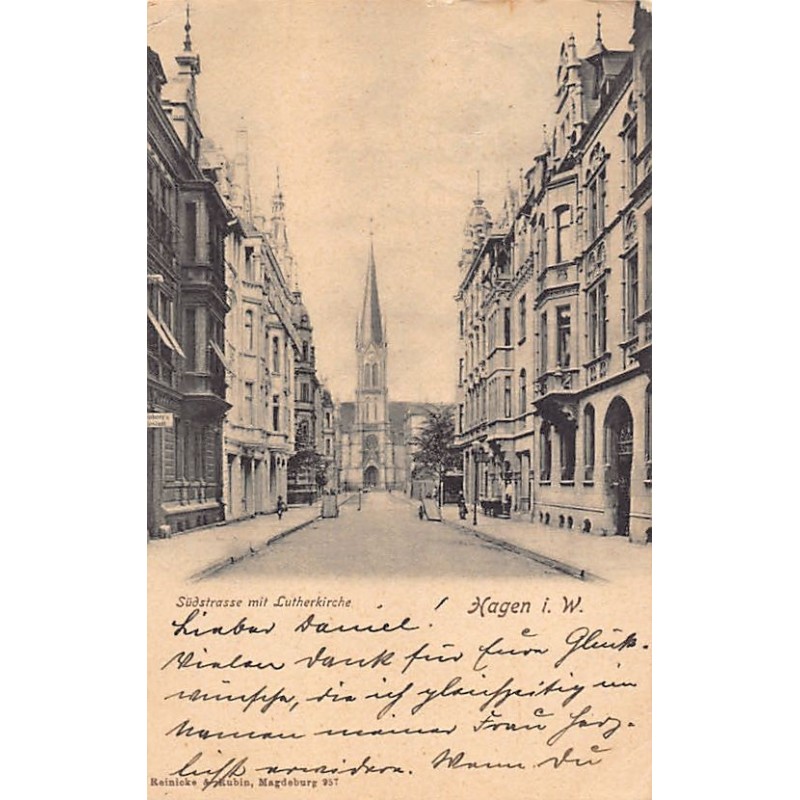 Südstrasse mit Lutherkirche.
Hagen i. W.
Lieber Daniel!
Vielen Dank für Eure Glück-
wünsche, die ich gleichzeitig im
Namen meiner Frau herz-
lichst erwidere. Wenn Du
Reinicke & Rubin, Magdeburg 957